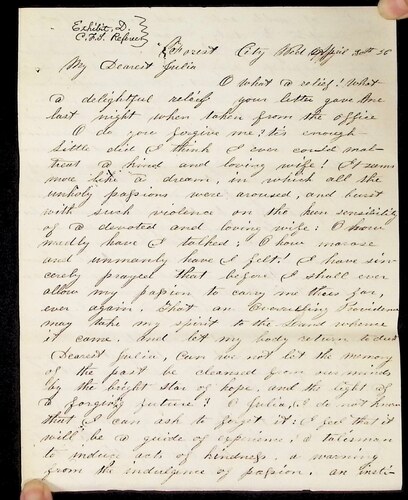 Exhibit, D.
C.F.J. Referee
Forest City Wed April 30th 56
My Dearest Julia
O what a relief! What
a delightful relief your letter gave me
last night when taken from the office
O do you forgive me? tis enough
Little did I think I ever could mal-
treat a kind and loving wife! It seems
more like a dream, in which all the
unholy passions were aroused, and burst
with such violence on the keen sensibility
of a devoted and loving wife: O how
madly have I talked! O how morose
and unmanly have I felt! I have sin-
cerely prayed that before I shall ever
allow my passion to carry me thus far,
ever again. That an Overruling Providence
may take my spirit to the land whence
it came. And let my body return to dust
Dearest Julia, Can we not let the memory
of the past be cleansed from our minds
by the bright star of hope, and the light of
a forgiving future? O Julia, I do not know
that I can ask to forget it: I feel that it
will be a guide of experience; a talisman
to induce acts of kindness. a warning
from the indulgence of passion, an insti-